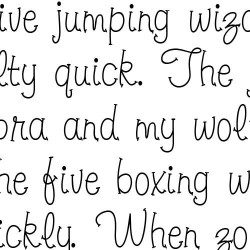 ive jumping wizo
lty quick. The j
ora and my wolv
he five boxing w
ickly. When zo